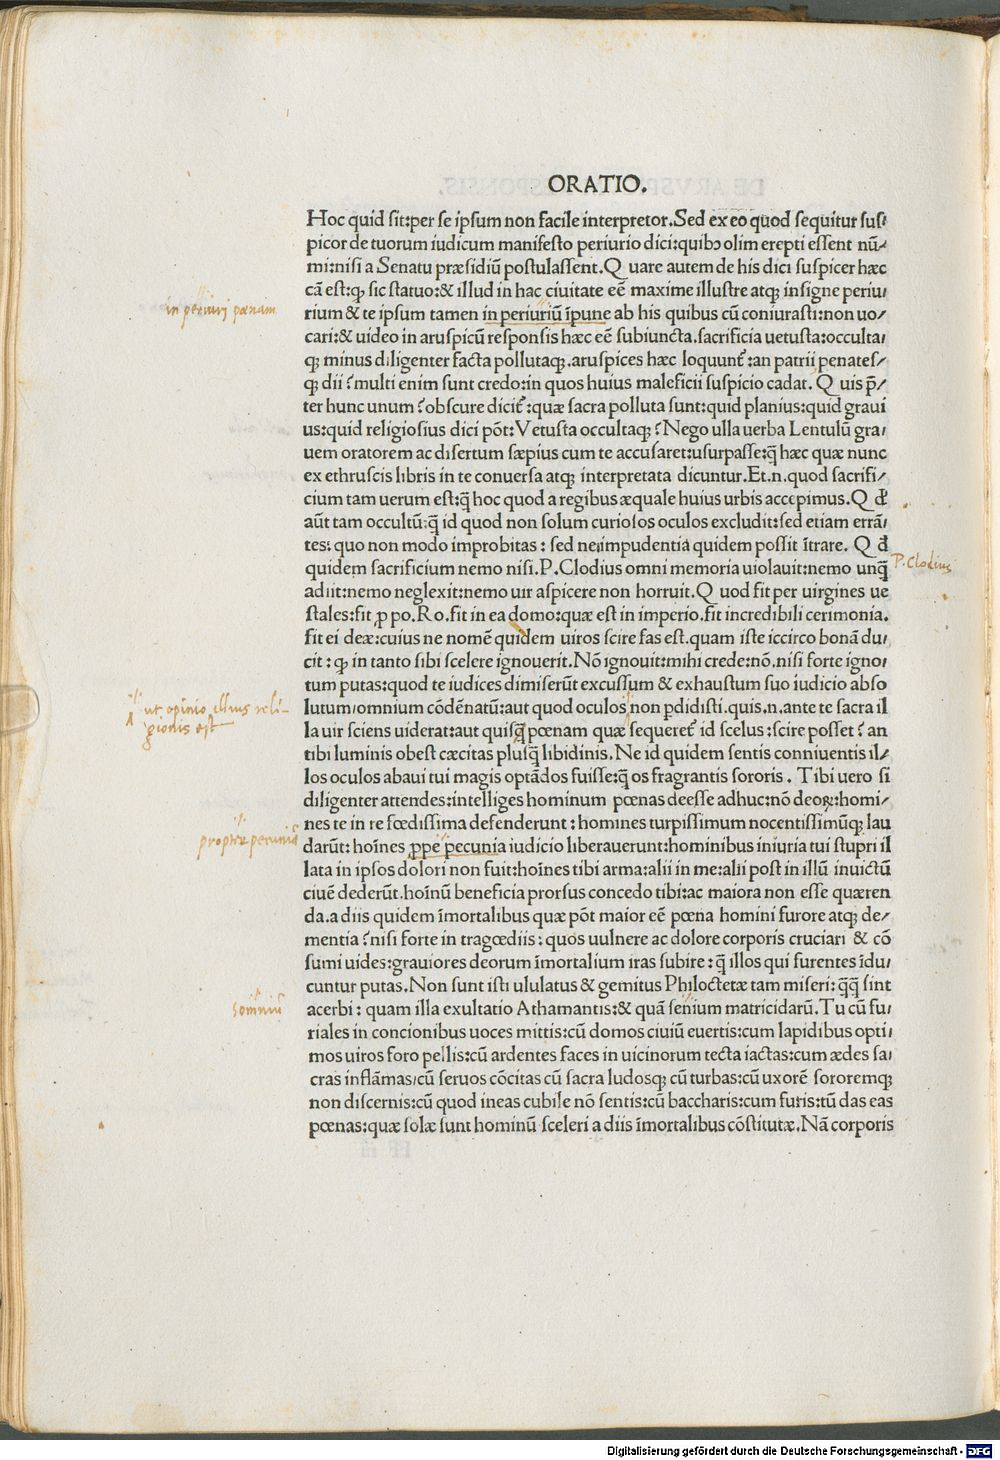 ORATIO.
Hoc quid sit:per se ipsum non facile interpretor.Sed ex eo quod sequitur sus
picor de tuorum iudicum manifesto periurio dici:quibꝰ olim erepti essent nū/
mi:nisi a Senatu præsidiū postulassent.Q uare autem de his dici suspicer hæc
cā est:ꝙ sic statuo:& illud in hac ciuitate eē maxime illustre atqꝫ insigne periu
rium & te ipsum tamen in periuriū īpune ab his quibus cū coniurasti:non uo
in periurij pœnam
cari:& uideo in aruspicū responsis hæc eē subiuncta.sacrificia uetusta:occulta
qꝫ minus diligenter facta pollutaqꝫ.aruspices hæc loquunt᷑:an patrii penates/
qꝫ dii?multi enim sunt credo:in quos huius maleficii suspicio cadat. Q uis p̄/
ter hunc unum?obscure dicit᷑:quæ sacra polluta sunt:quid planius:quid graui
us:quid religiosius dici pōt:Vetusta occultaqꝫ?Nego ulla uerba Lentulū gra
uem oratorem ac disertum sæpius cum te accusaret:usurpasse:q̄ hæc quæ nunc
ex ethruscis libris in te conuersa atqꝫ interpretata dicuntur.Et.n.quod sacrifi/
cium tam uerum est:q̄ hoc quod a regibus æquale huius urbis accepimus.Q đ
aūt tam occultū:q̄ id quod non solum curiosos oculos excludit:sed etiam errā
tes:quo non modo improbitas: sed ne impudentia quidem possit ītrare. Q đ
P. Clodius
quidem sacrificium nemo nisi.P.Clodius omni memoria uiolauit:nemo unq̄
adiit:nemo neglexit:nemo uir aspicere non horruit.Q uod fit per uirgines ue
stales:fit ꝓ po.Ro.fit in ea domo:quæ est in imperio.fit incredibili cerimonia.
fit ei deæ:cuius ne nomē quidem uiros scire fas est.quam iste iccirco bonā du
cit:ꝙ in tanto sibi scelere ignouerit.Nō ignouit:mihi crede:nō.nisi forte igno
tum putas:quod te iudices dimiserūt excussum & exhaustum suo iudicio abso
lutum,omnium cōdēnatū:aut quod oculos non pdidisti.quis.n.ante te sacra il
ut opinio illius reli-
gionis est
la uir sciens uiderat:aut quisq̄ pœnam quæ sequeret᷑ id scelus:scire posset?an
tibi luminis obest cæcitas plusq̄ libidinis. Ne id quidem sentis conniuentis il/
los oculos abaui tui magis optādos fuisse:q̄ os fragrantis sororis. Tibi uero si
diligenter attendes:intelliges hominum pœnas deesse adhuc:nō deoꝝ:homi/
nes te in re fœdissima defenderunt:homines turpissimum nocentissimūqꝫ lau
darūt: hoīnes ꝓpe pecunia iudicio liberauerunt:hominibus iniuria tui stupri il
propter pecuniā
lata in ipsos dolori non fuit:hoīnes tibi arma:alii in me:alii post in illū inuictū
ciuē dederūt.hoīnū beneficia prorsus concedo tibi:ac maiora non esse quæren
da.a diis quidem īmortalibus quæ pōt maior eē pœna homini furore atqꝫ de/
mentia?nisi forte in tragœdiis: quos uulnere ac dolore corporis cruciari & cō
sumi uides:grauiores deorum īmortalium iras subire: q̄ illos qui furentes īdu
cuntur putas.Non sunt isti ululatus & gemitus Philoctetæ tam miseri: q̄q̄ sint
acerbi: quam illa exultatio Athamantis:& quā senium matricidarū.Tu cū fu
somniū
riales in concionibus uoces mittis:cū domos ciuiū euertis:cum lapidibus opti
mos uiros foro pellis:cū ardentes faces in uicinorum tecta iactas:cum ædes sa
cras inflāmas,cū seruos cōcitas cū sacra ludosqꝫ cū turbas:cū uxorē sororemqꝫ
non discernis:cū quod ineas cubile nō sentis:cū baccharis:cum furis:tū das eas
pœnas:quæ solæ sunt hominū sceleri a diis īmortalibus cōstitutæ.Nā corporis
Digitalisierung gefördert durch die Deutsche Forschungsgemeinschaft - DFG